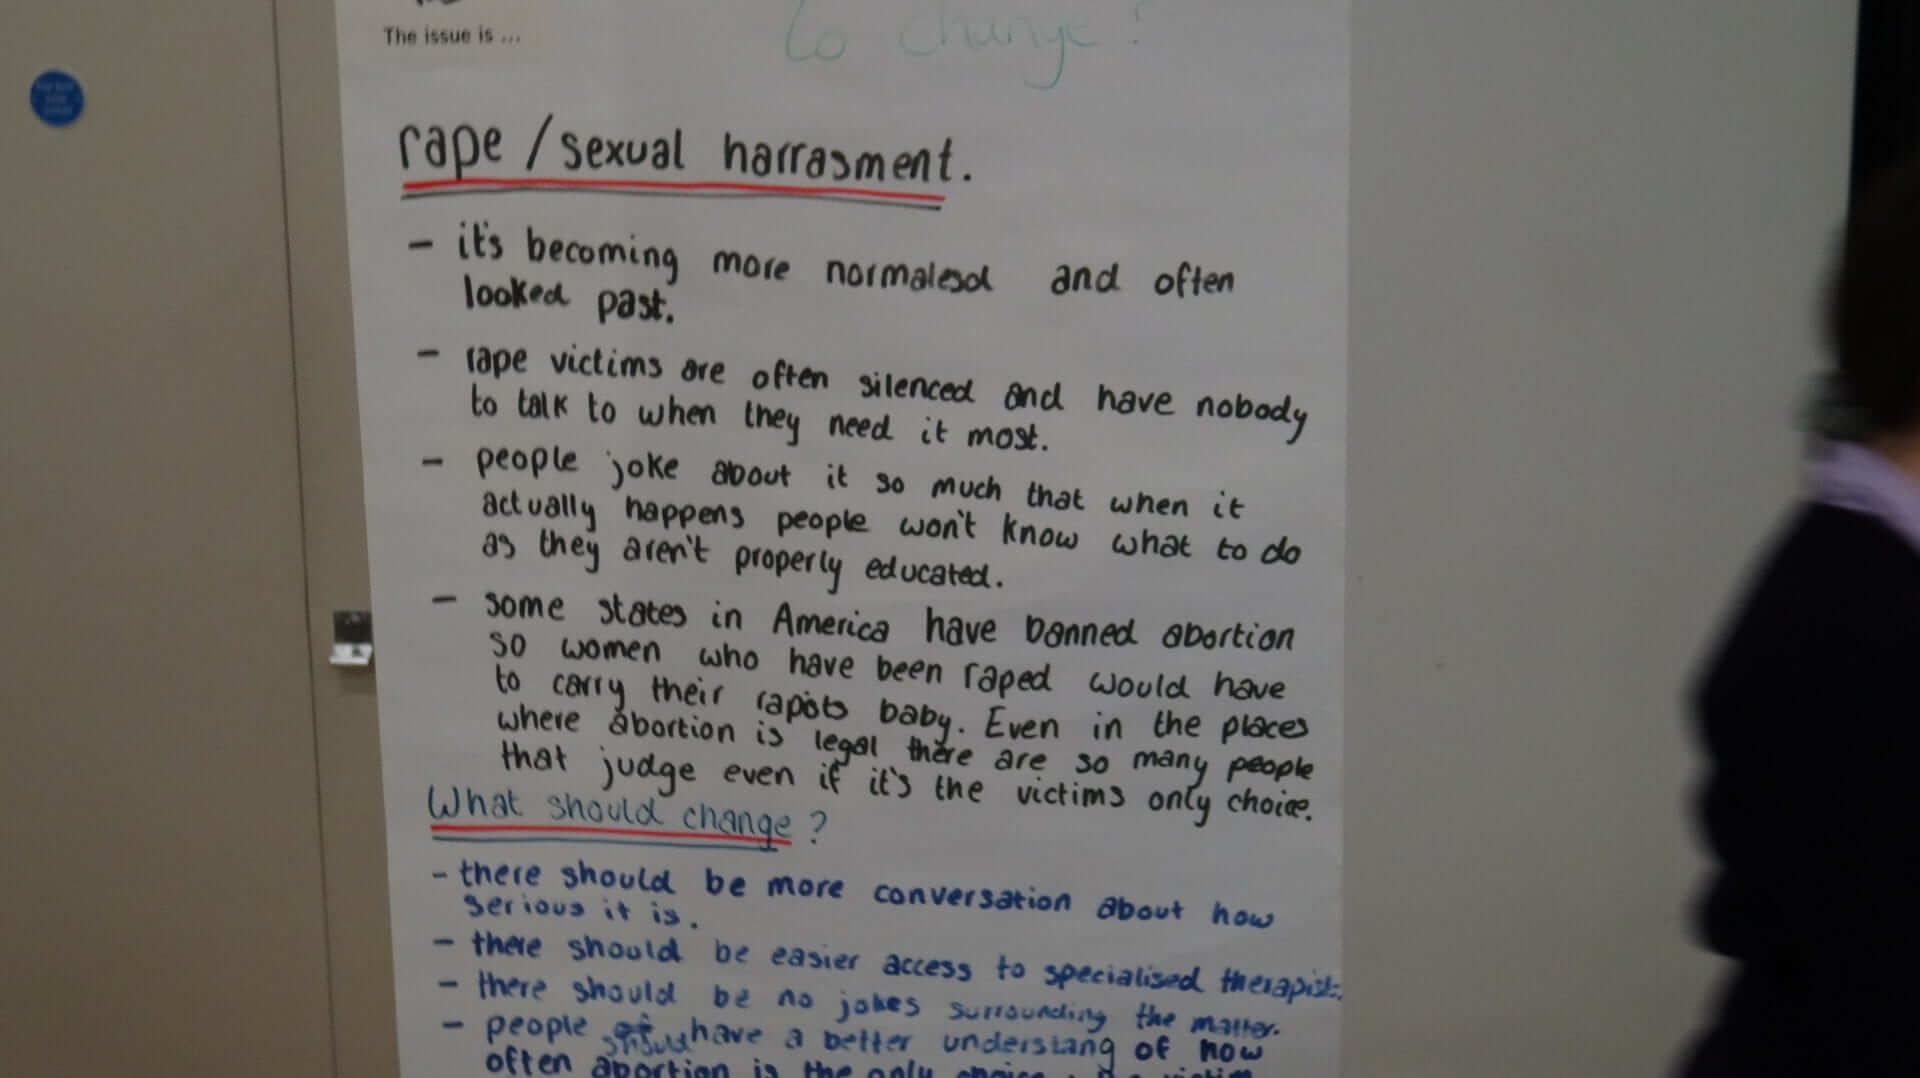 to change?
The issue is ...
rape / sexual harrasment.
- it's becoming more normalesd and often
looked past.
- rape victims are often silenced and have nobody
to talk to when they need it most.
- people joke about it so much that when it
actually happens people won't know what to do
as they aren't properly educated.
- some states in America have banned abortion
so women who have been raped would have
to carry their rapists baby. Even in the places
where abortion is legal there are so many people
that judge even if it's the victims only choice.
What should change?
- there should be more conversation about how
serious it is.
- there should be easier access to specialised therapists.
- there should be no jokes surrounding the matter.
- people should have a better understang of how
often abortion is the only